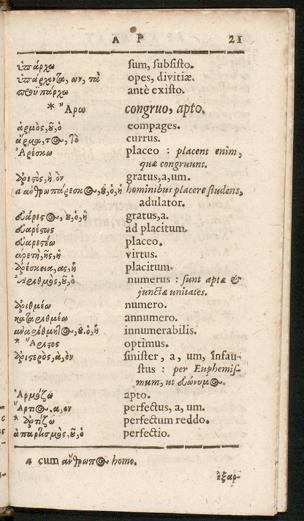 A P 21
ὑπάρχω sum, subsisto.
ὑπάρχοντα, ων, τὰ opes, divitiæ.
προϋπάρχω antè existo.
* Ἄρω congruo, apto.
ἁρμὸς, ȣ, ὁ compages.
ἅρμα, τος, τὸ currus.
Ἀρέσκω placeo : placent enim,
quæ congruunt.
ἀρεστὸς, ὴ, ὸν gratus, a, um.
a ἀνθρωπάρεσκος, ȣ, ὁ, ἡ hominibus placere studens,
adulator.
gratus, a.
ad placitum.
placeo.
ἀρετὴ, ῆς, ἡ virtus.
ἀρέσκεια, ας, ἡ placitum.
Ἀριθμὸς, ȣ, ὁ numerus : sunt aptæ &
junctæ unitates.
ἀριθμέω numero.
καταριθμέω annumero.
ἀναρίθμητος, ȣ, ὁ, ἡ innumerabilis.
* Ἄριστος optimus.
ἀριστερὸς, ὰ, ὸν sinister, a, um, infau-
stus : per Euphemis-
mum, ut
Ἁρμόζω apto.
Ἄρτιος, α, ον perfectus, a, um.
* ἀρτίζω perfectum reddo.
ἀπαρτισμὸς, ȣ, ὁ perfectio.
a cum ἄνθρωπος homo.
ἐξαρ-